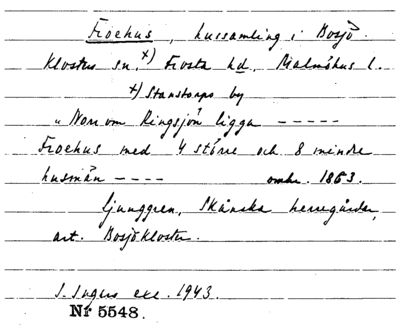 Froehus, hussamling i Bosjö-
Kloster sn, x) Frosta hd, Malmöhus l.
x) Stanstorps by
„ Norr om Ringsjön ligga -----
Froehus med 4 större och 8 mindre
husmän ---- omkr. 1853.
Ljunggren, Skånska herregårdar,
art. Bosjökloster.
I. Ingers exc. 1943.
Nr 5548.